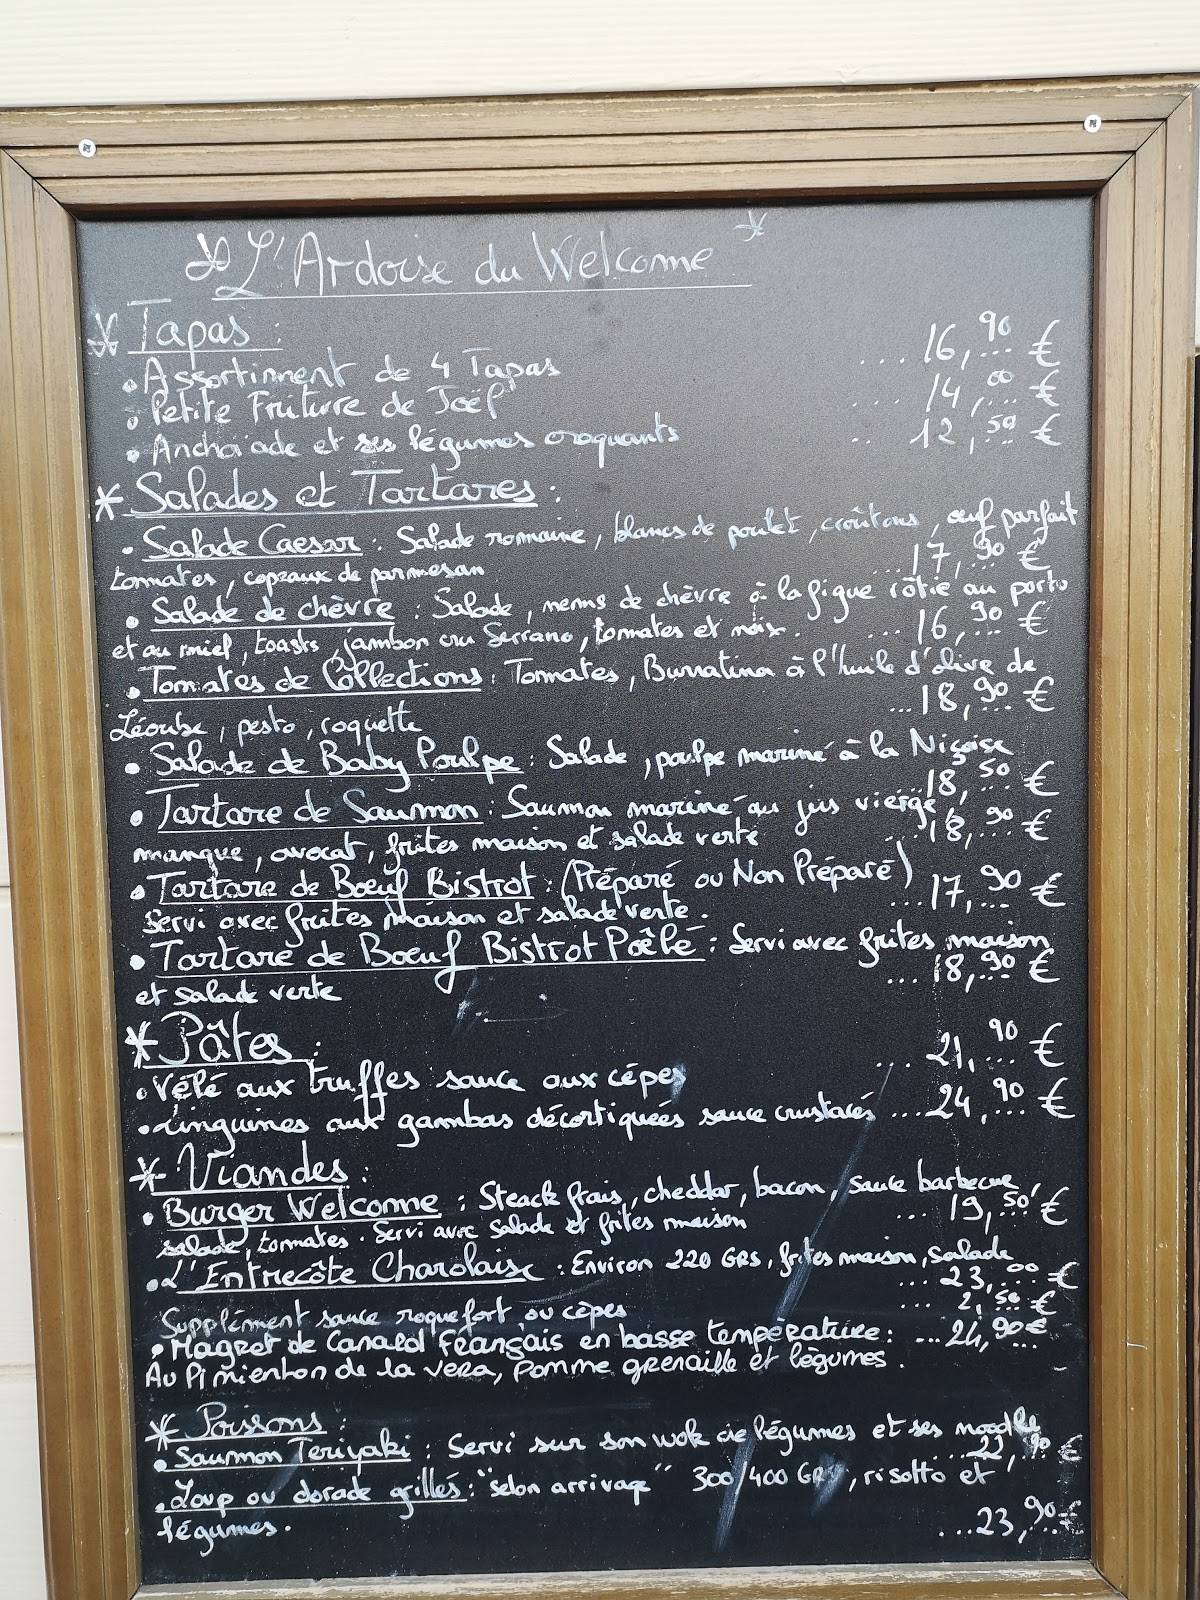 L'Ardoise du Welcome
* Tapas :
• Assortiment de 4 Tapas ... 16,90 €
• Petite Friture de Joël .... 14,00 €
• Anchoïade et ses légumes croquants .. 12,50 €
* Salades et Tartares :
• Salade Caesar : Salade romaine, blancs de poulet, croûtons, œuf parfait
tomates, copeaux de parmesan ...17,90 €
• Salade de chèvre : Salade, nems de chèvre à la figue rôtie au porto
et au miel, toasts, jambon cru Serrano, tomates et noix. ... 16,90 €
• Tomates de Collections : Tomates, Burratina à l'huile d'olive de
...18,90 €
Léoube, pesto, roquette
• Salade de Baby Poulpe : Salade, poulpe mariné à la Niçoise
...18,50 €
• Tartare de Saumon : Saumon mariné au jus vierge,
mangue, avocat, frites maison et salade verte ...18,90 €
• Tartare de Boeuf Bistrot : (Préparé ou Non Préparé)
...17,90 €
Servi avec frites maison et salade verte.
• Tartare de Boeuf Bistrot Poêlé : Servi avec frites maison
...18,90 €
et salade verte
* Pâtes :
... 21,90 €
• Vélé aux truffes sauce aux cépes
• Linguines aux gambas décortiquées sauce crustacés ...24,90 €
* Viandes :
• Burger Welcome : Steack frais, cheddar, bacon, sauce barbecue,
... 19,50 €
salade, tomates. Servi avec salade et frites maison
• L'Entrecôte Charolaise : Environ 220 GRS, frites maison, salade
... 23,00 €
Supplément sauce roquefort ou cèpes ... 2,50 €
• Magret de Canard Français en basse température : ...24,90 €
Au Pimienton de la vera, Pomme grenaille et légumes.
* Poissons :
• Saumon Teriyaki : Servi sur son wok de légumes et ses
...22,90 €
• Loup ou dorade grillés : "selon arrivage" 300/400 GRS, risotto et
légumes. ...23,90 €